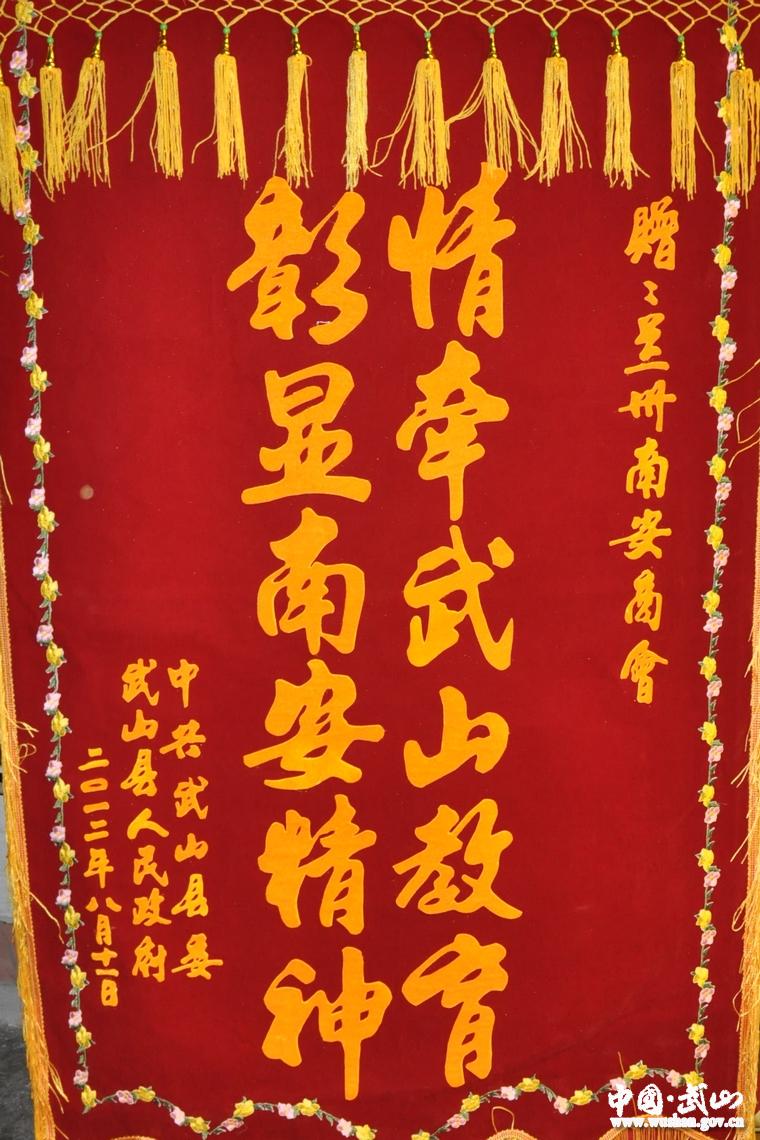 赠:兰州南安商會
情牵武山教育
彰显南安精神
中共武山县委
武山县人民政府
二〇一二年八月十一日
中国·武山
www.wushan.gov.cn